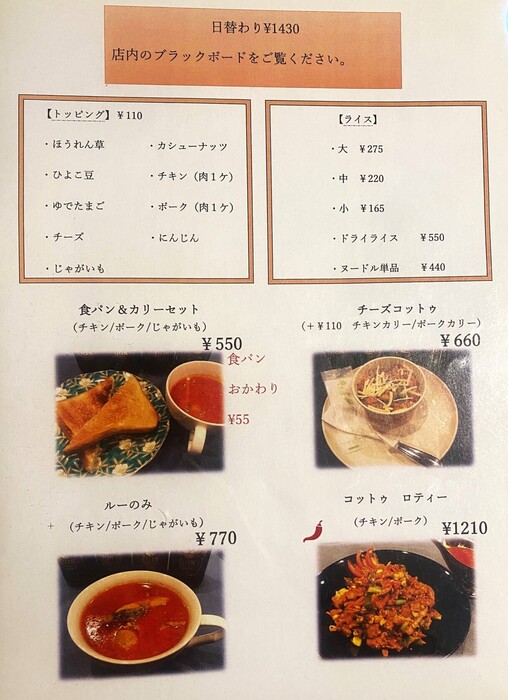 日替わり¥1430
店内のブラックボードをご覧ください。
【トッピング】¥110
・ほうれん草
・カシューナッツ
・ひよこ豆
・チキン（肉1ケ）
・ゆでたまご
・ポーク（肉1ケ）
・チーズ
・にんじん
・じゃがいも
【ライス】
・大 ¥275
・中 ¥220
・小 ¥165
・ドライライス ¥550
・ヌードル単品 ¥440
食パン＆カリーセット
（チキン/ポーク/じゃがいも）
¥550
食パン
おかわり
¥55
チーズコットゥ
（＋¥110 チキンカリー/ポークカリー）
¥660
ルーのみ
＋ （チキン/ポーク/じゃがいも）
¥770
コットゥ ロティー
（チキン/ポーク）
¥1210